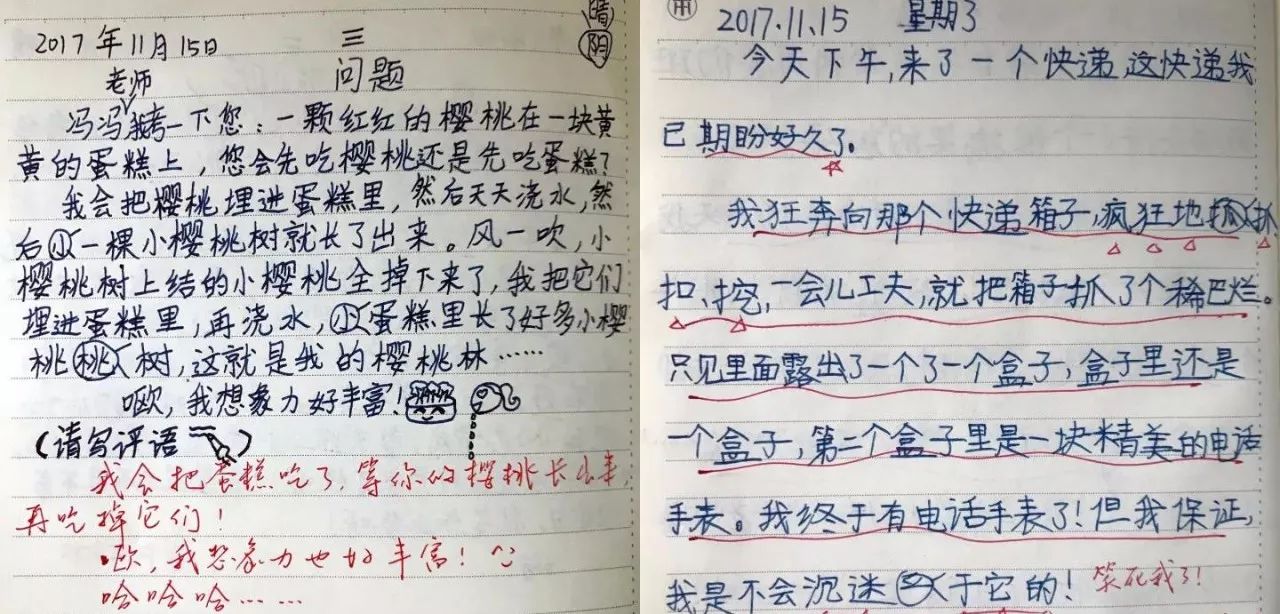 晴
阴
2017年11月15日 三
老师 问题
冯冯我考一下您：一颗红红的樱桃在一块黄
黄的蛋糕上，您会先吃樱桃还是先吃蛋糕？
我会把樱桃埋进蛋糕里，然后天天浇水，然
后一棵小樱桃树就长了出来。风一吹，小
樱桃树上结的小樱桃全掉下来了，我把它们
埋进蛋糕里，再浇水，蛋糕里长了好多小樱
桃桃树，这就是我的樱桃林……
呕，我想象力好丰富！
（请写评语）
我会把蛋糕吃了，等你的樱桃长出来，
再吃掉它们！
欧，我想象力也好丰富！
哈哈哈……
2017.11.15 星期3
今天下午，来了一个快递，这快递我
已期盼好久了。
我狂奔向那个快递箱子，疯狂地抓、抓、
扣、挖，一会儿工夫，就把箱子抓了个稀巴烂。
只见里面露出了一个了一个盒子，盒子里还是
一个盒子，第二个盒子里是一块精美的电话
手表。我终于有电话手表了！但我保证，
我是不会沉迷于它的！ 笑死我了！